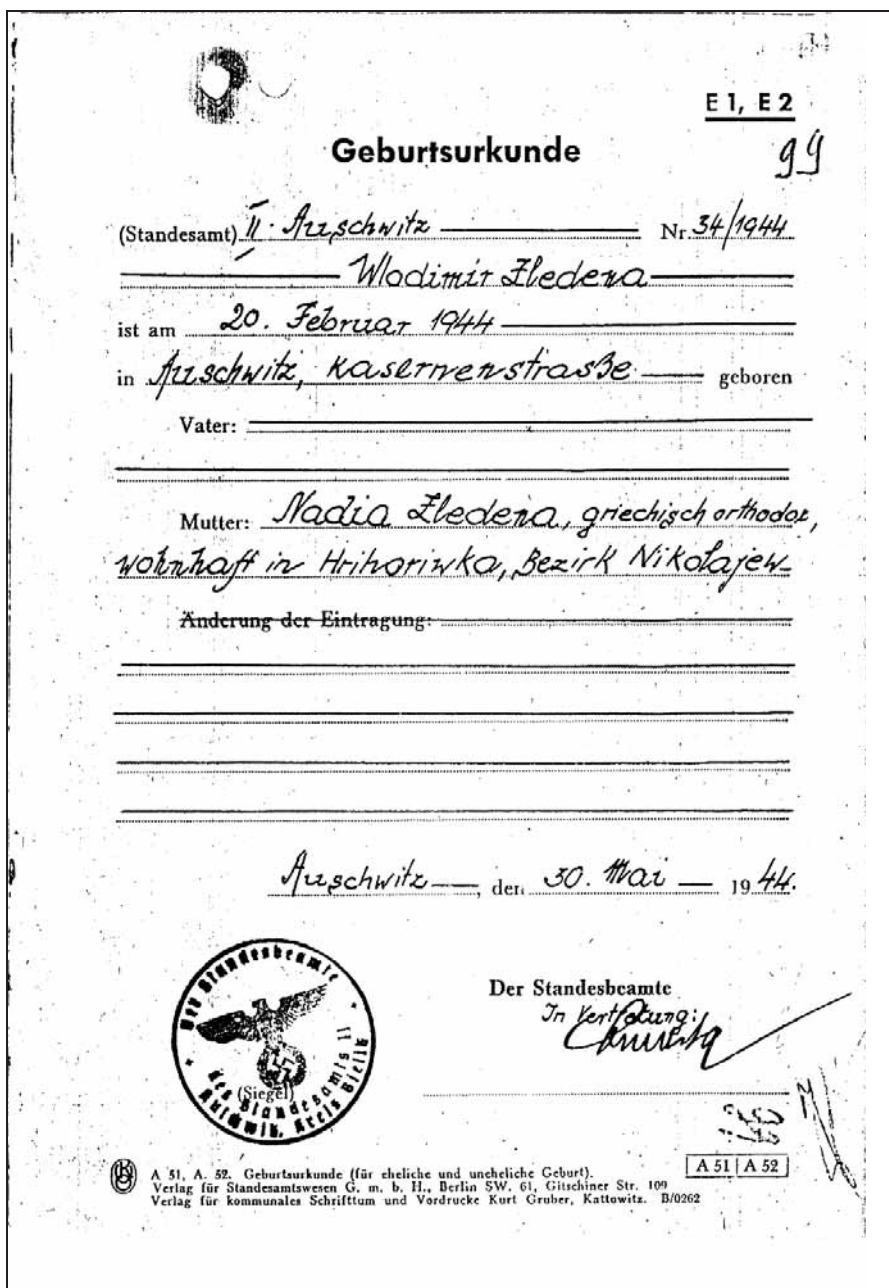 E 1, E 2
Geburtsurkunde
99
(Standesamt) II Auschwitz Nr. 34/1944
Wlodimir Zledena
ist am 20. Februar 1944
in Auschwitz, Kasernenstraße geboren
Vater:
Mutter: Nadia Zledena, griechisch orthodox,
wohnhaft in Hrihoriwka, Bezirk Nikolajew
Änderung der Eintragung:
Auschwitz, den 30. Mai 1944.
Der Standesbeamte
In Vertretung:
Der Standesbeamte
des Standesamts II
Auschwitz, Kreis Bielitz
(Siegel)
A 51 A 52
A 51, A. 52. Geburtsurkunde (für eheliche und uneheliche Geburt).
Verlag für Standesamtswesen G. m. b. H., Berlin SW. 61, Gitschiner Str. 109
Verlag für kommunales Schrifttum und Vordrucke Kurt Gruber, Kattowitz. B/0262